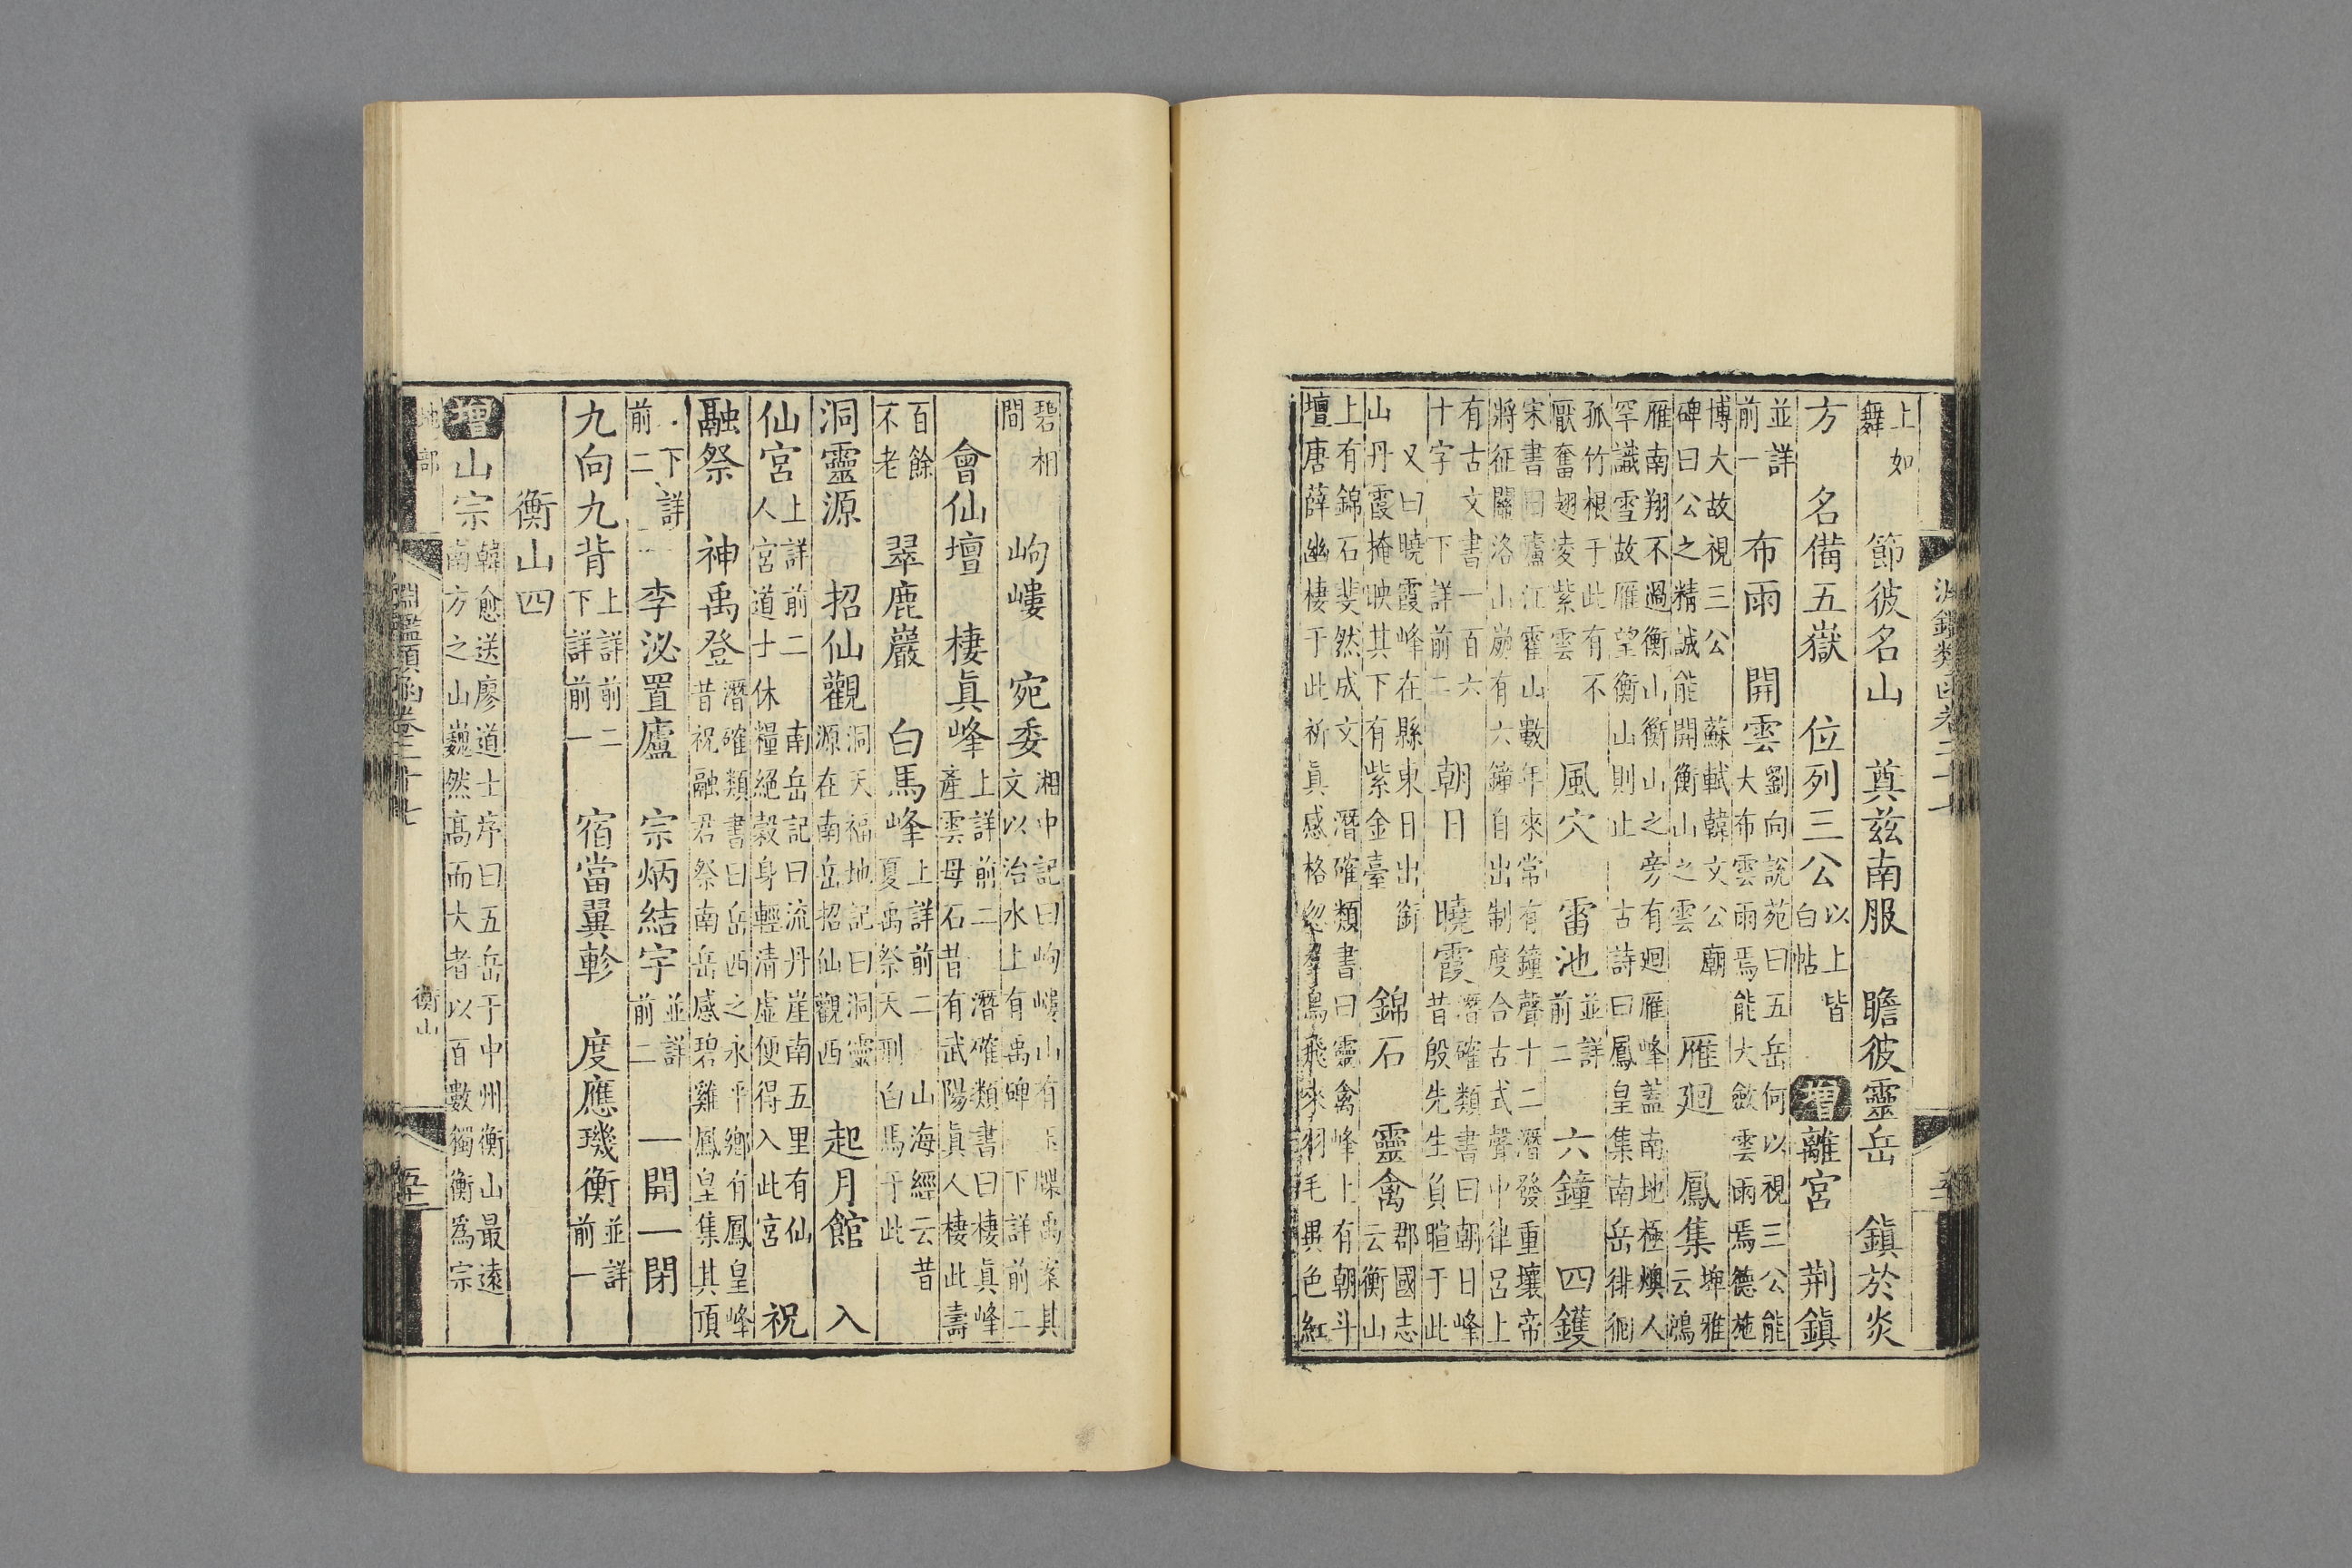 淵鑑類函卷二十七
上如舞 節彼名山 奠兹南服 瞻彼靈岳 鎮於炎
方 名備五嶽 位列三公 以上皆白帖 增 離宮 荆鎮
並詳前一 布雨 開雲 劉向說苑曰五岳何以視三公能大布雲雨焉能大斂雲雨焉德施
博大故視三公 蘇軾韓文公廟碑曰公之精誠能開衡山之雲 雁迴 鳳集 埤雅云鴻
雁南翔不過衡山衡山之旁有迴雁峰蓋南地極燠人罕識雪故雁望衡山則止 古詩曰鳳皇集南岳徘徊
孤竹根于此有不厭奮翅凌紫雲 風穴 雷池 並詳前二 六鐘 四鑊
宋書曰廬江霍山數年來常有鐘聲十二 潛發重壤帝將征關洛山崩有六鐘自出制度合古式聲中律呂上
有古文書一百六十字 下詳前二 朝日 曉霞 潛確類書曰朝日峰昔殷先生負暄于此
又曰曉霞峰在縣東日出銜山丹霞掩映其下有紫金臺 錦石 靈禽 郡國志云衡山
上有錦石斐然成文 潛確類書曰靈禽峰上有朝斗壇唐薛幽棲于此祈眞感格忽羣鳥飛來羽毛異色紅
碧相間 岣嶁 宛委 湘中記曰岣嶁山有玉牒禹案其文以治水上有禹碑 下詳前二
會仙壇 棲眞峰 上詳前二 潛確類書曰棲眞峰產雲母石昔有武陽眞人棲此壽
百餘不老 翠鹿巖 白馬峰 上詳前二 山海經云昔夏禹祭天刑白馬于此
洞靈源 招仙觀 洞天福地記曰洞靈源在南岳招仙觀西 起月館 入
仙宮 上詳前二 南岳記曰流丹崖南五里有仙人宮道士休糧絕穀身輕清虛便得入此宮 祝
融祭 神禹登 潛確類書曰岳西之永平鄉有鳳皇峰昔祝融君祭南岳感碧雞鳳皇集其頂
下詳前二 李泌置廬 宗炳結宇 並詳前二 一開一閉
九向九背 上詳前二下詳前一 宿當翼軫 度應璣衡 並詳前一
衡山四
增 山宗 韓愈送廖道士序曰五岳于中州衡山最遠南方之山巍然高而大者以百數獨衡爲宗
地部 淵鑑類函卷二十七 衡山